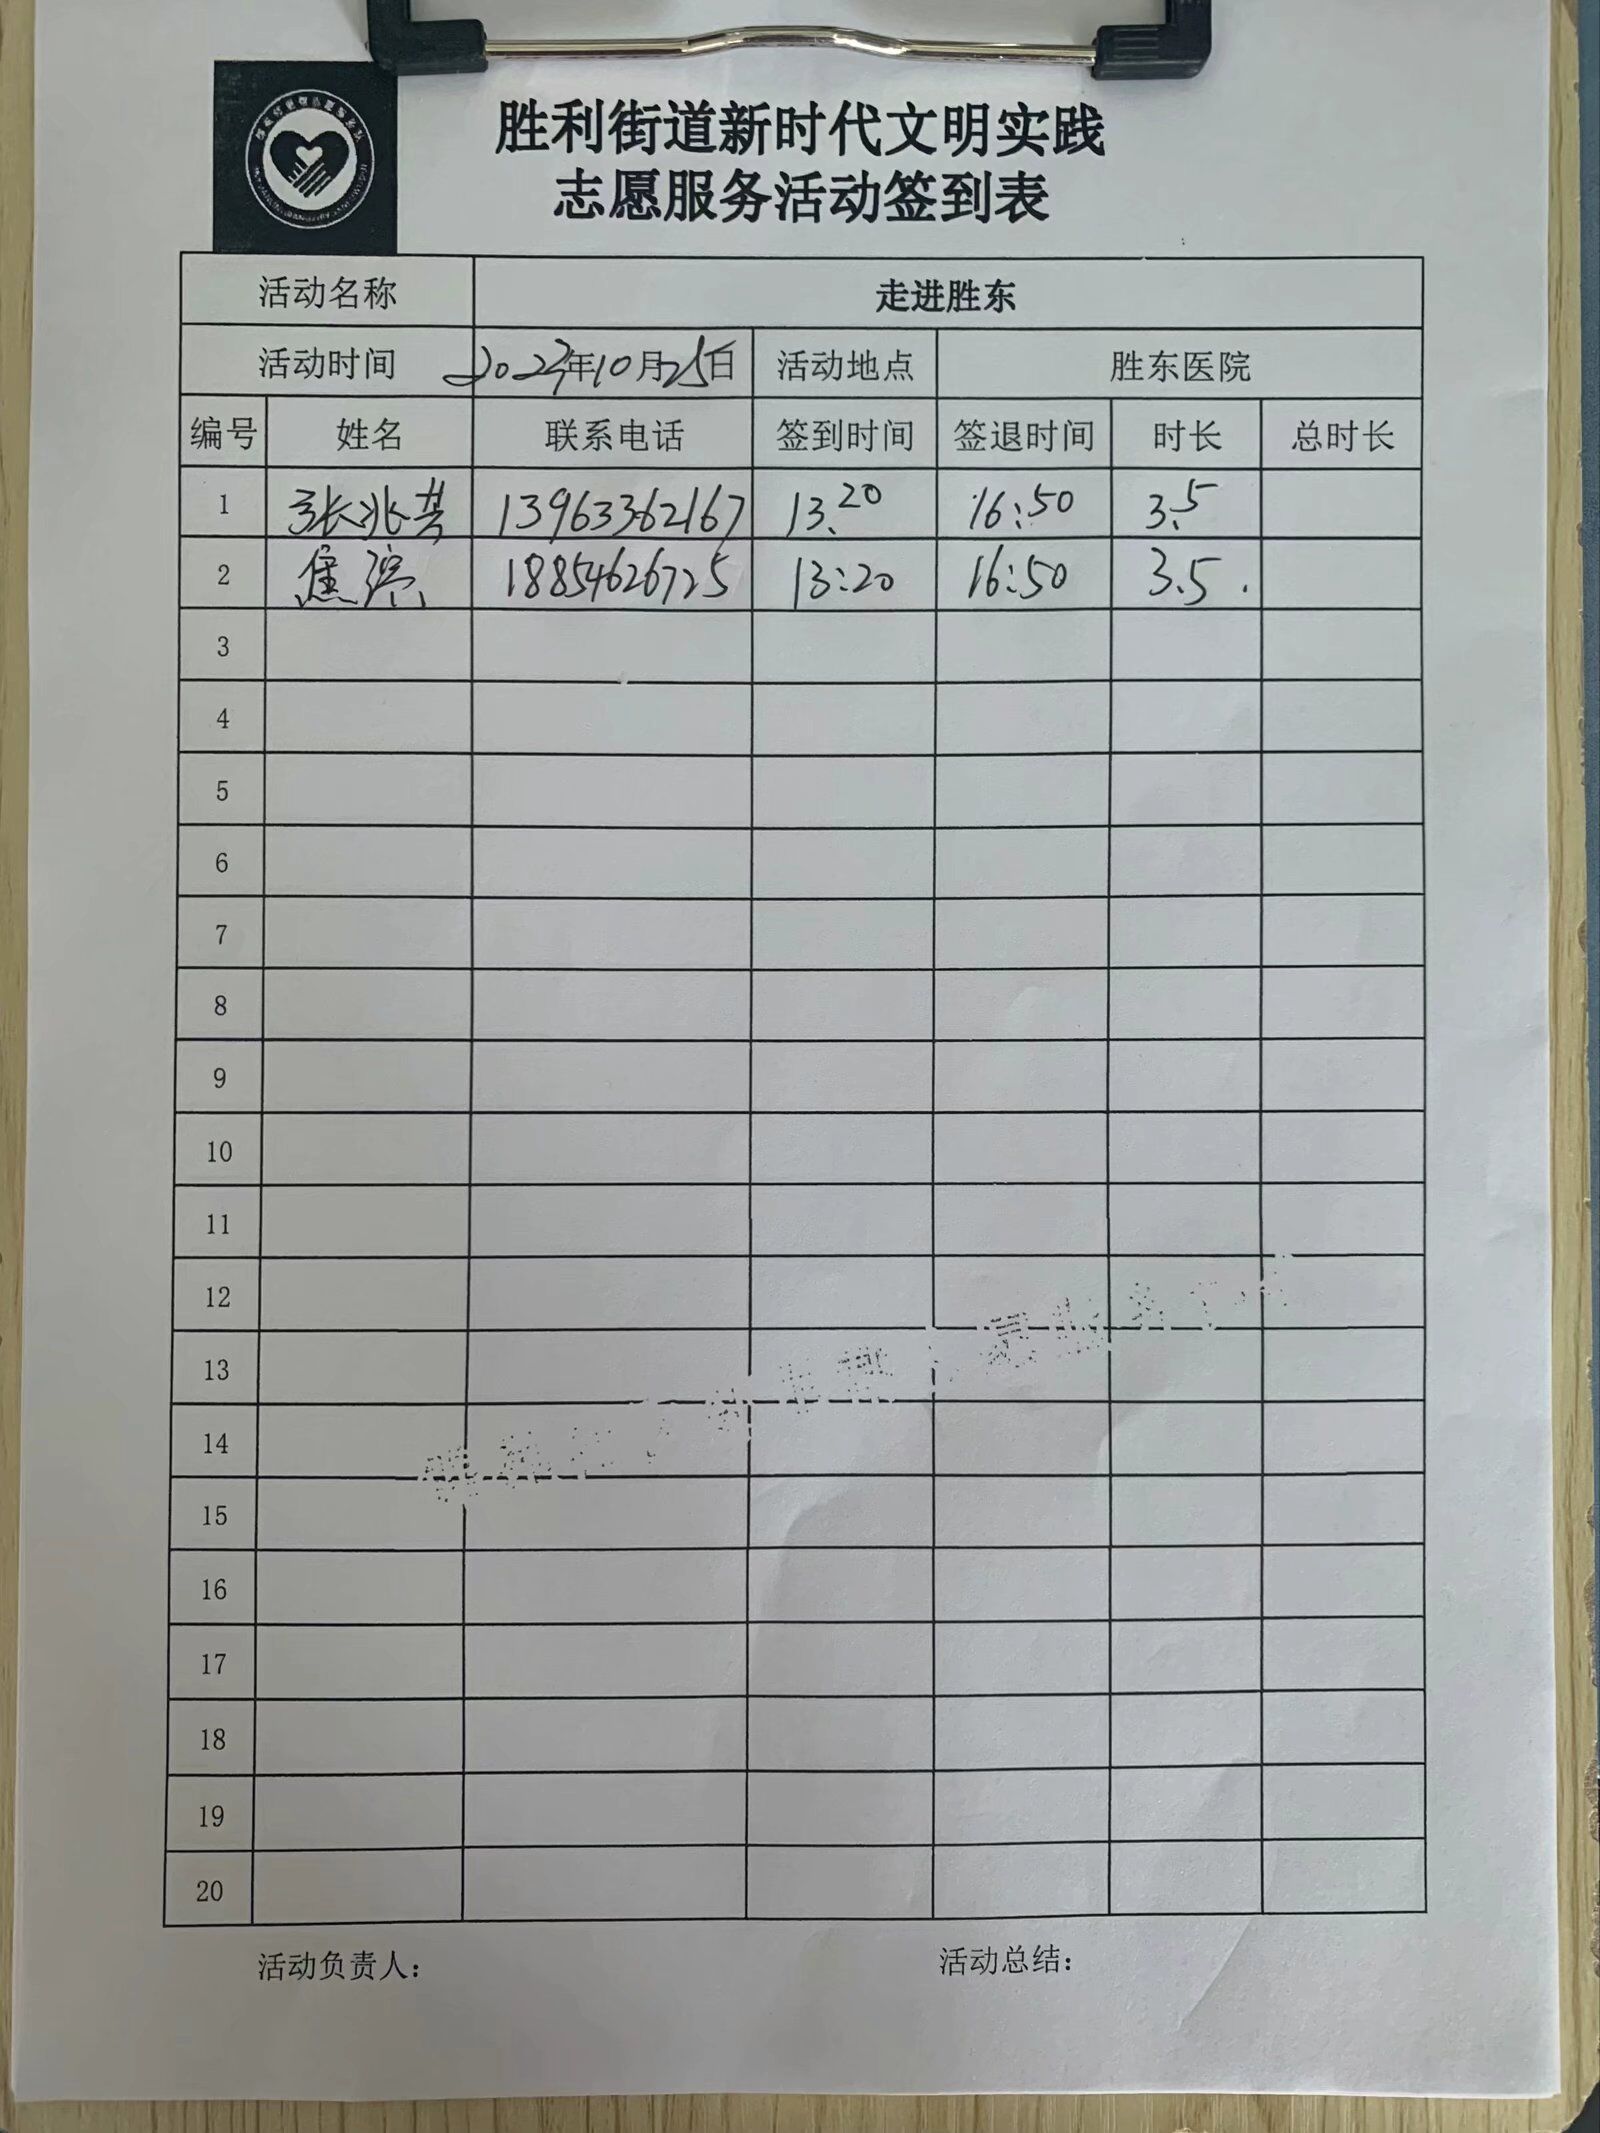 胜利街道新时代文明实践
志愿服务活动签到表
活动名称 走进胜东
活动时间 2024年10月25日 活动地点 胜东医院
编号 姓名 联系电话 签到时间 签退时间 时长 总时长
1 张兆芸 13963362167 13.20 16:50 3.5
2 焦滨 18854626725 13:20 16:50 3.5.
3
4
5
6
7
8
9
10
11
12
13
14
15
16
17
18
19
20
活动负责人： 活动总结：